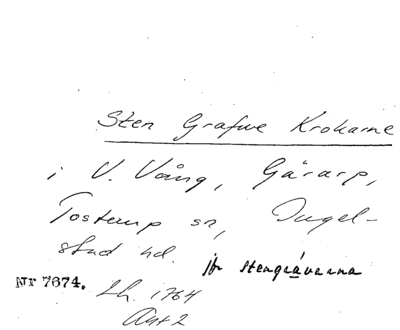 Sten Grafwe Krokarne
i V. Vång, Gårarp,
Tosterup sn, Ingel-
stad hd. jfr stengrávarna
Nr 7674. Lh. 1764
Akt 2